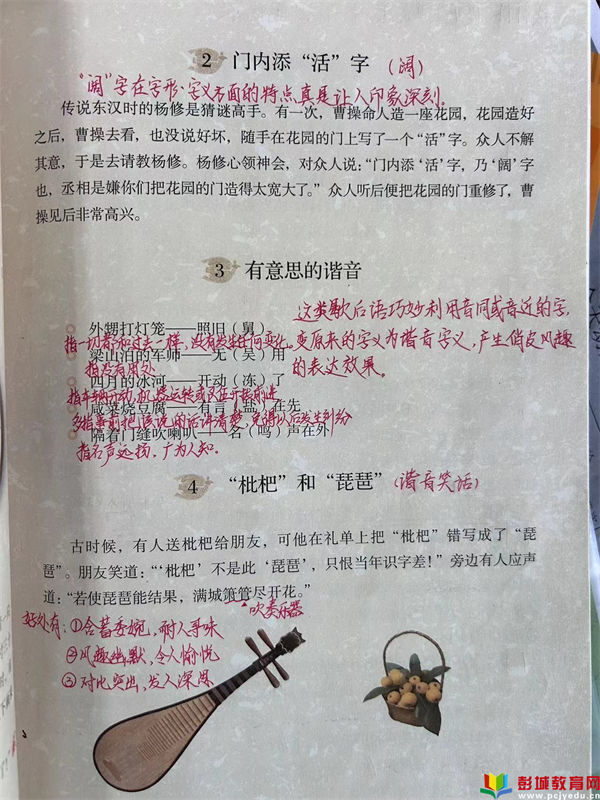 2 门内添“活”字 (阔)
“阔”字在字形、字义方面的特点真是让人印象深刻。
传说东汉时的杨修是猜谜高手。有一次，曹操命人造一座花园，花园造好
之后，曹操去看，也没说好坏，随手在花园的门上写了一个“活”字。众人不解
其意，于是去请教杨修。杨修心领神会，对众人说：“门内添‘活’字，乃‘阔’字
也，丞相是嫌你们把花园的门造得太宽大了。”众人听后便把花园的门重修了，曹
操见后非常高兴。
3 有意思的谐音
这类歇后语巧妙利用音同或音近的字，
外甥打灯笼——照旧（舅）
指一切都和过去一样，没有发生任何变化。
变原来的字义为谐音字义，产生俏皮风趣
梁山泊的军师——无（吴）用
指没有用处
的表达效果。
四月的冰河——开动（冻）了
指车辆开动，机器运转或队伍开拔前进
咸菜烧豆腐——有言（盐）在先
多指事前把该说的话讲清楚，免得以后发生纠纷
隔着门缝吹喇叭——名（鸣）声在外
指名声远扬，广为人知。
4 “枇杷”和“琵琶” (谐音笑话)
古时候，有人送枇杷给朋友，可他在礼单上把“枇杷”错写成了“琵
琶”。朋友笑道：“‘枇杷’不是此‘琵琶’，只恨当年识字差！”旁边有人应声
道：“若使琵琶能结果，满城箫管尽开花。”
吹奏乐器
好处有：①含蓄委婉，耐人寻味
②风趣幽默，令人愉悦
③对比突出，发人深思
彭城教育网
www.pcjyedu.cn